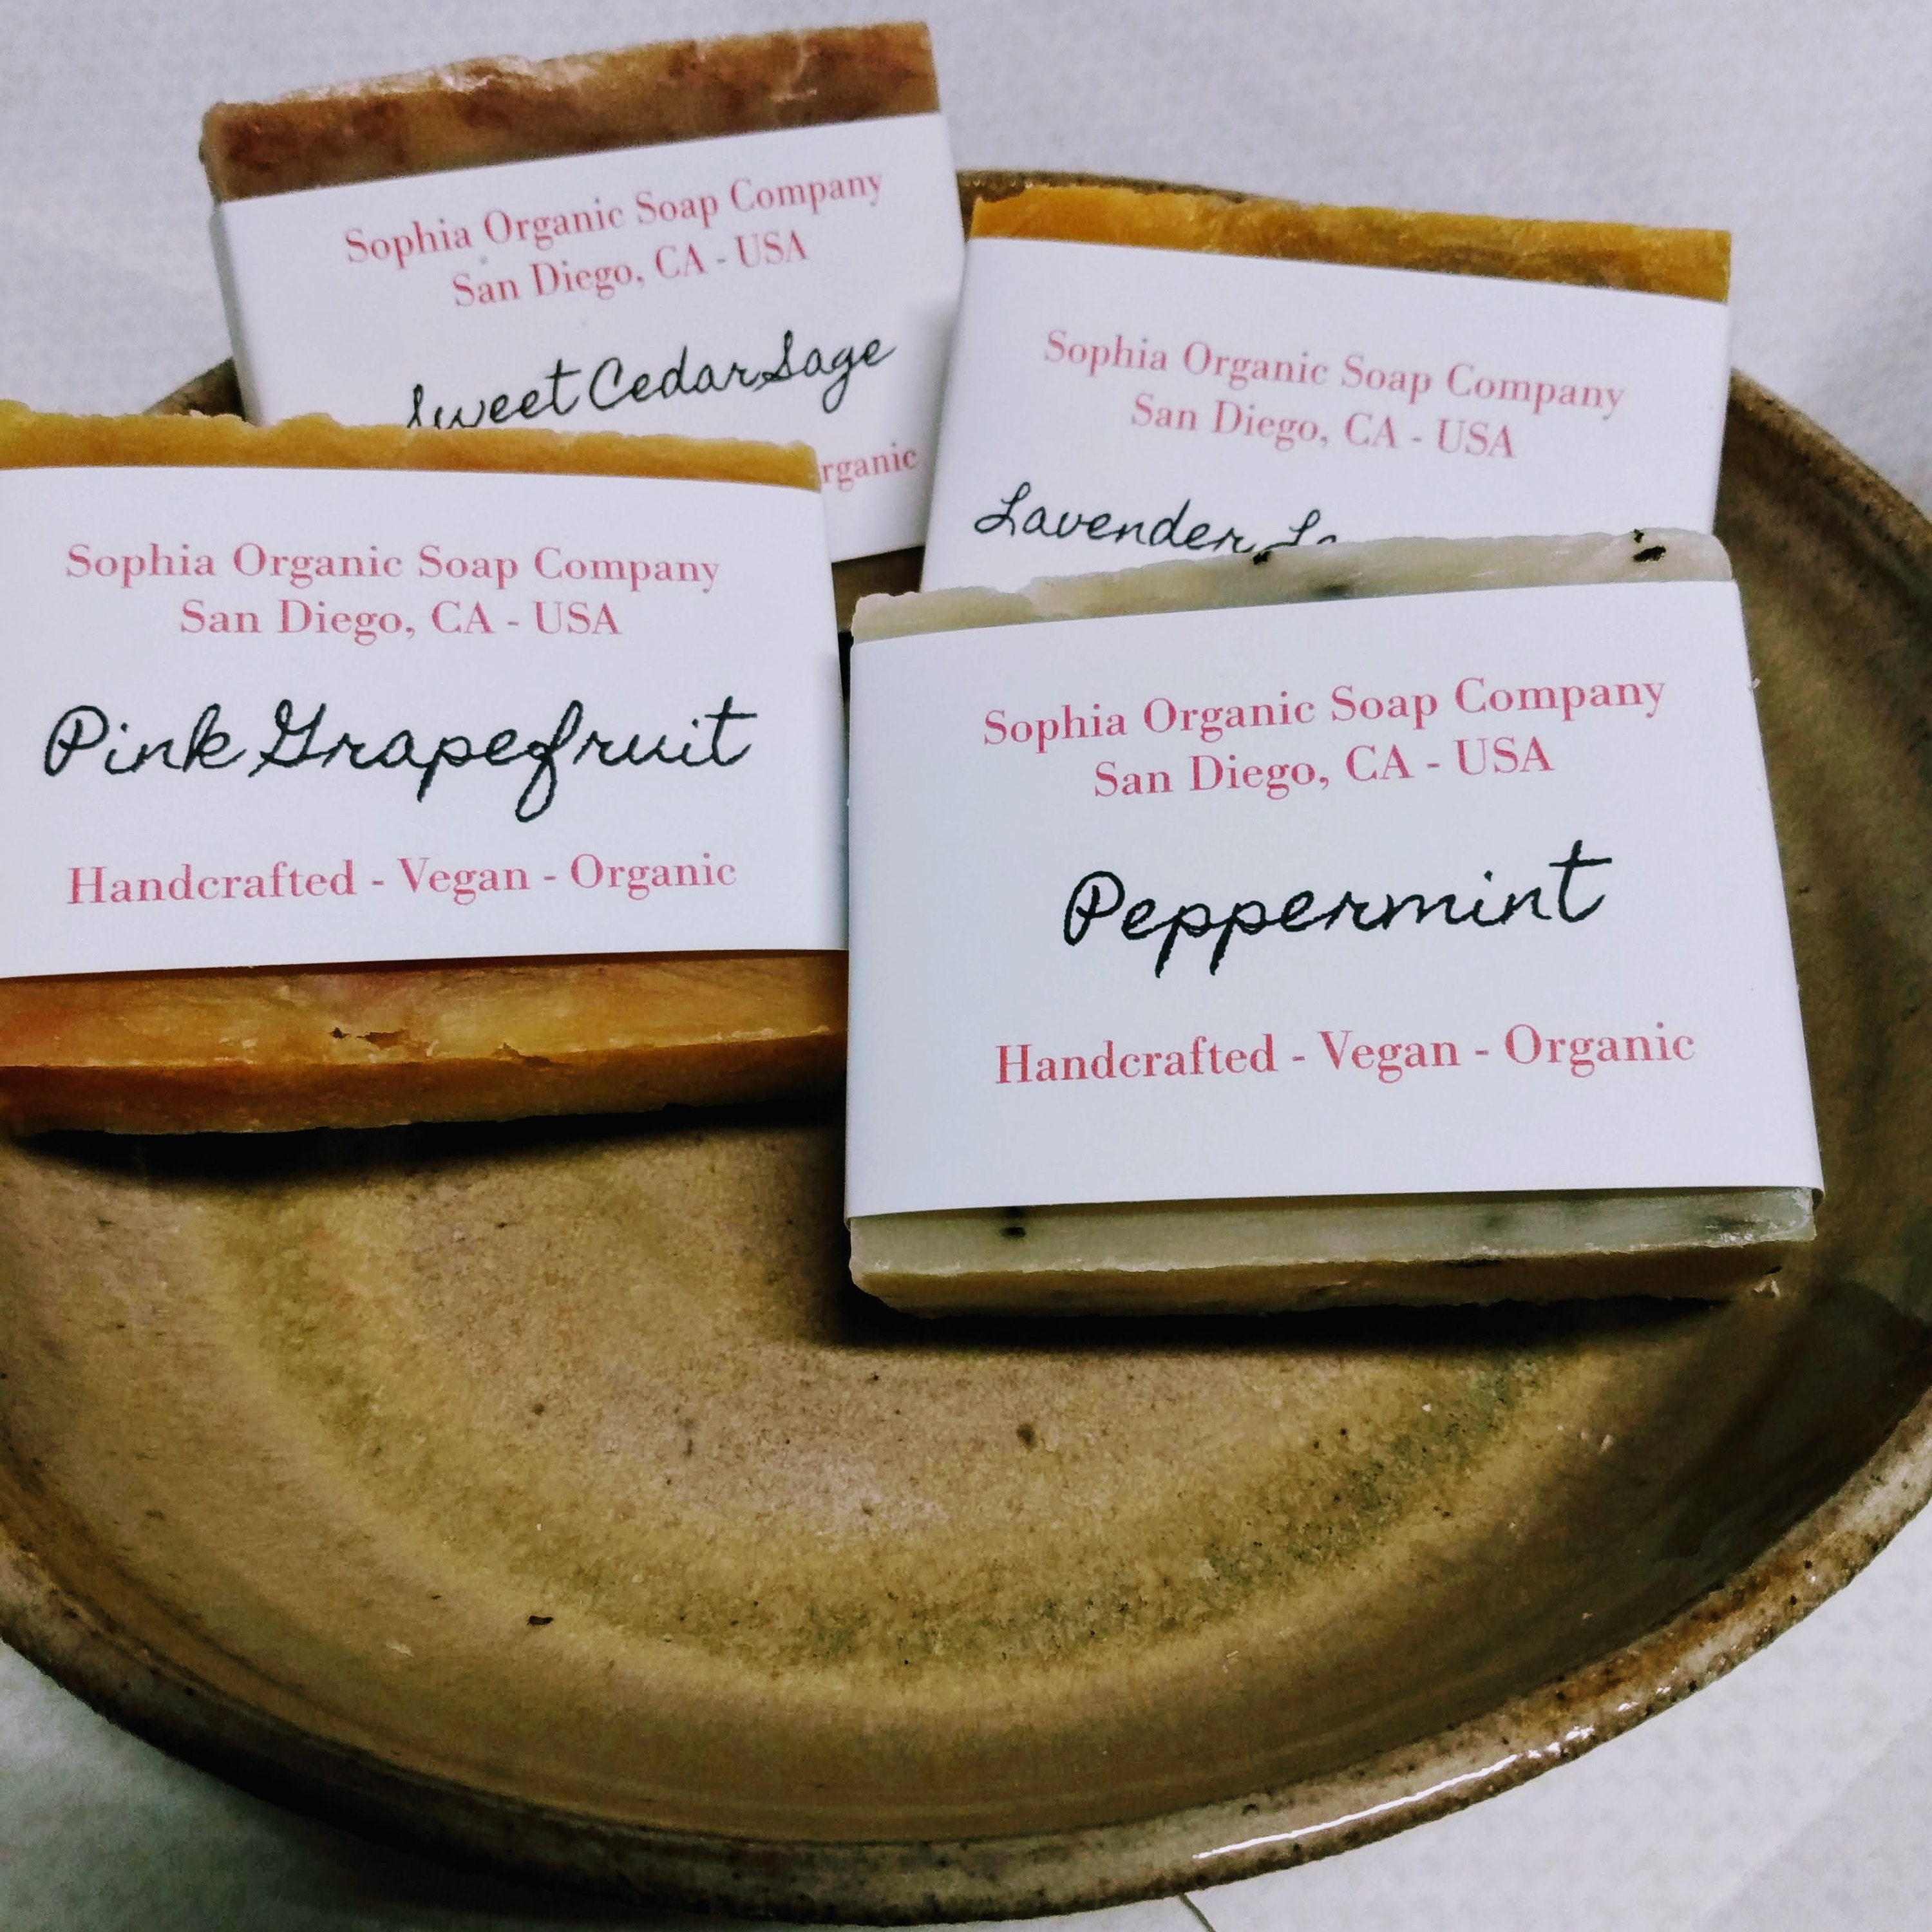 Sophia Organic Soap Company
San Diego, CA - USA
Sweet Cedar Sage
Sophia Organic Soap Company
San Diego, CA - USA
Lavender
Sophia Organic Soap Company
San Diego, CA - USA
Pink Grapefruit
Handcrafted - Vegan - Organic
Sophia Organic Soap Company
San Diego, CA - USA
Peppermint
Handcrafted - Vegan - Organic